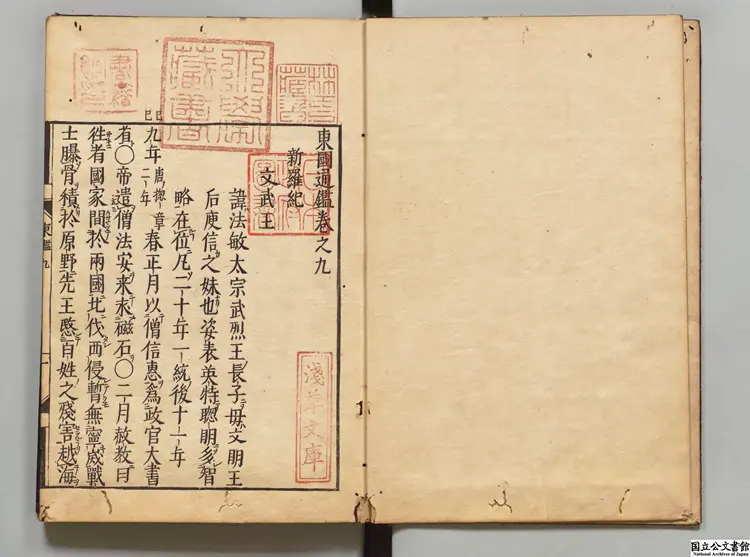 東國通鑑卷之九
新羅紀
文武王
諱法敏太宗武烈王長子母文明王
后庾信之妹也姿表英特聰明多智
略在位凡二十年一統後十一年
己巳九年唐摠章二年春正月以僧信惠為政官大書
省〇帝遣僧法安来求磁石〇二月赦教曰
徃者國家間於兩國北伐西侵暫無寧歳戰
士曝骨積於原野先王愍百姓之殘害越海
東鑑九
一
淺草文庫
林氏藏書
国立公文書館
National Archives of Japan